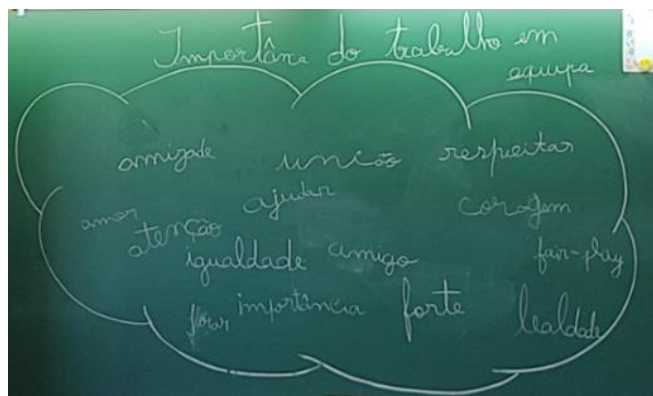 Importânca do trabalho em
equipa
amizade uncão respeitar
amor ajudar coragem
atenção
igualdade amigo fair-play
importância forte lealdade